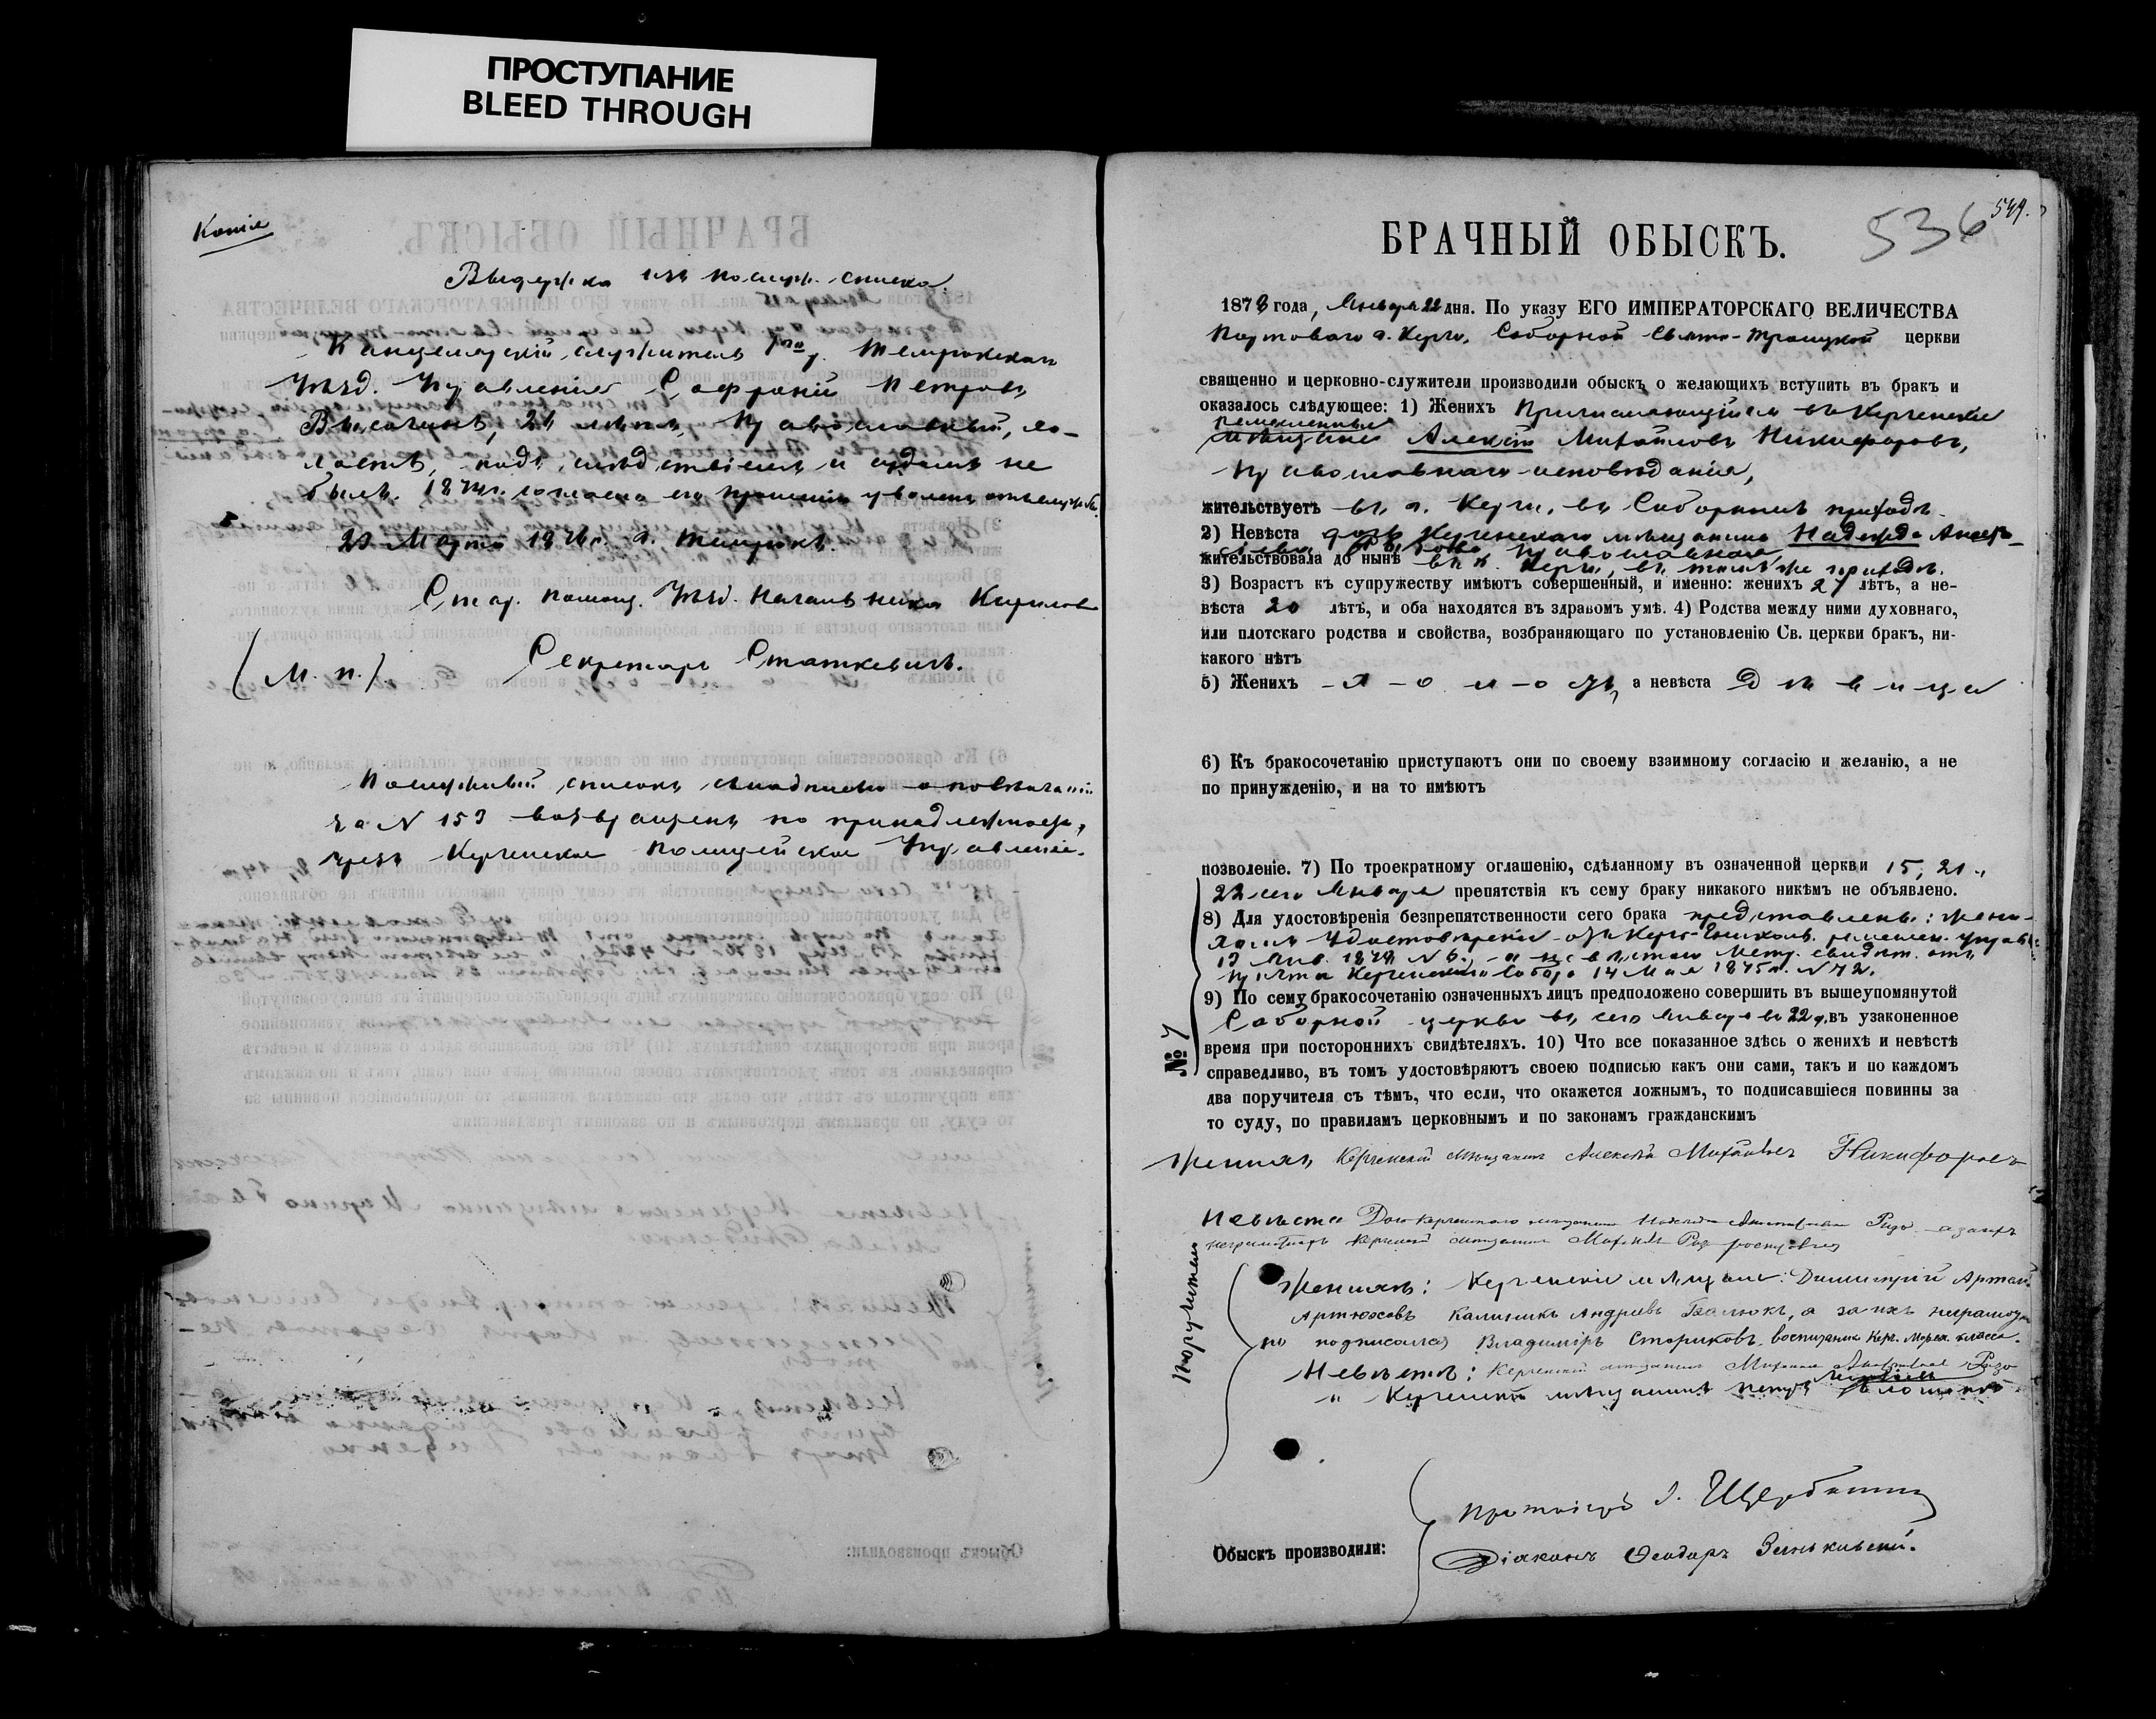 ПРОСТУПАНИЕ
BLEED THROUGH
Копіе
Выдержка изъ послуж. списка.
Канцелярскій служитель 1го р. Темрюкскаго
Уѣзд. Управленія Софроній Петровъ
24 лѣтъ, Православный, хо-
лостъ, подъ слѣдствіемъ и судомъ не
былъ. согласно его прошенію уволенъ отъ службы.
20 Марта г. Темрюкъ.
Стар. Помощ. Уѣзд. Начальника Кириловъ
(М. п.) Секретарь Статкевичъ.
Послужной списокъ съ надписью о повѣнчаніи
за № 153 возвращенъ по принадлежности,
чрезъ Керченское Полицейское Управленіе.
БРАЧНЫЙ ОБЫСКЪ.
536
544.
1878 года, Января 22 дня. По указу ЕГО ИМПЕРАТОРСКАГО ВЕЛИЧЕСТВА
Портоваго г. Керчи, Соборной Свято-Троицкой церкви
священно и церковно-служители производили обыскъ о желающихъ вступить въ бракъ и
оказалось слѣдующее: 1) Женихъ Причисляющійся въ Керченскіе
ремесленные
мѣщане Алексѣй Михайловъ Никифоровъ,
Православнаго исповѣданія,
жительствуетъ въ г. Керчи, въ Соборномъ приходѣ.
2) Невѣста дочь Керченскаго мѣщанина Надежда
жительствовала до нынѣ въ г. Керчи, въ томъ же приходѣ.
3) Возрастъ къ супружеству имѣютъ совершенный, и именно: женихъ 27 лѣтъ, а не-
вѣста 20 лѣтъ, и оба находятся въ здравомъ умѣ. 4) Родства между ними духовнаго,
или плотскаго родства и свойства, возбраняющаго по установленію Св. церкви бракъ, ни-
какого нѣтъ
5) Женихъ холостъ, а невѣста дѣвица
6) Къ бракосочетанію приступаютъ они по своему взаимному согласію и желанію, а не
по принужденію, и на то имѣютъ
позволеніе. 7) По троекратному оглашенію, сдѣланному въ означенной церкви 15, 21 и
22 сего Января препятствія къ сему браку никакого никѣмъ не объявлено.
8) Для удостовѣренія безпрепятственности сего брака представлены: жени-
хомъ Удостовѣреніе отъ Керчь-Еникольс. ремеслен. управы
Янв. 1878 № 6, а невѣстою Метр. свидѣт. отъ
причта Керченскаго Собора 14 Мая 1875 г. № 72.
9) По сему бракосочетанію означенныхъ лицъ предположено совершить въ вышеупомянутой
Соборной церкви сего Января въ 22 д. въ узаконенное
время при постороннихъ свидѣтеляхъ. 10) Что все показанное здѣсь о женихѣ и невѣстѣ
справедливо, въ томъ удостовѣряютъ своею подписью какъ они сами, такъ и по каждомъ
два поручителя съ тѣмъ, что если, что окажется ложнымъ, то подписавшіеся повинны за
то суду, по правиламъ церковнымъ и по законамъ гражданскимъ
№ 7
Женихъ, Керченскій мѣщанинъ Алексѣй Михайловъ Никифоровъ
Невѣста Дочь керченскаго мѣщанина Надежда
неграмотную Керченскій мѣщанинъ
Поручители
по
Женихѣ: Керченскіе мѣщане: Димитрій
Артюховъ Калиникъ Андреевъ Балюкъ, а за ихъ неграмотн.
подписался Владиміръ Стариковъ, воспитаникъ Керч. Морех. класса.
Невѣстѣ: Керченскій мѣщанинъ
" Керченскій мѣщанинъ Петръ
Обыскъ производили:
Протоіерей І. Щербина
Діаконъ Ѳеодоръ Зеньковскій.